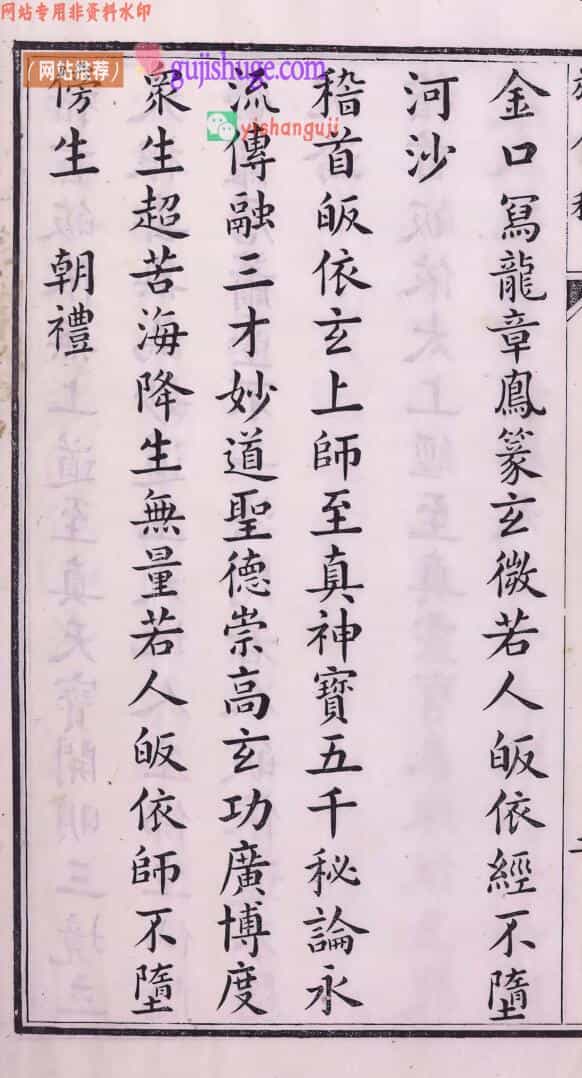 网站专用非资料水印
(网站推荐)
gujishuge.com
yishanguji
金口冩龍章鳳篆玄微若人皈依經不墮
河沙
稽首皈依玄上師至真神寶五千秘論永
流傳融三才妙道聖德崇高玄功廣博度
衆生超苦海降生無量若人皈依師不墮
傍生 朝禮